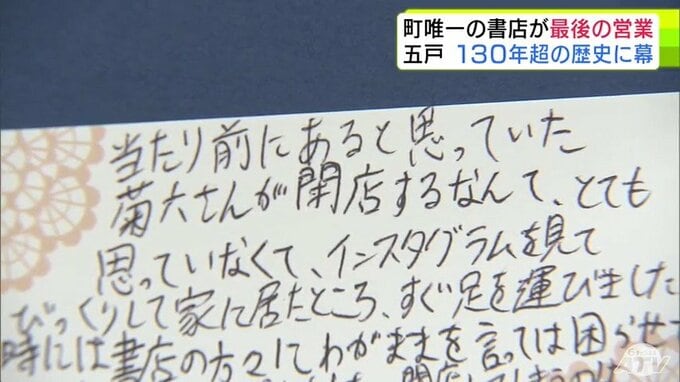 町唯一の書店が最後の営業
五戸 130年超の歴史に幕
当たり前にあると思っていた
菊大さんが閉店するなんて、とても
思っていなくて、インスタグラムを見て
びっくりして家に居たところ、すぐ足を運び生した
時には書店の方々にわがままを言っては困らせて
ATV